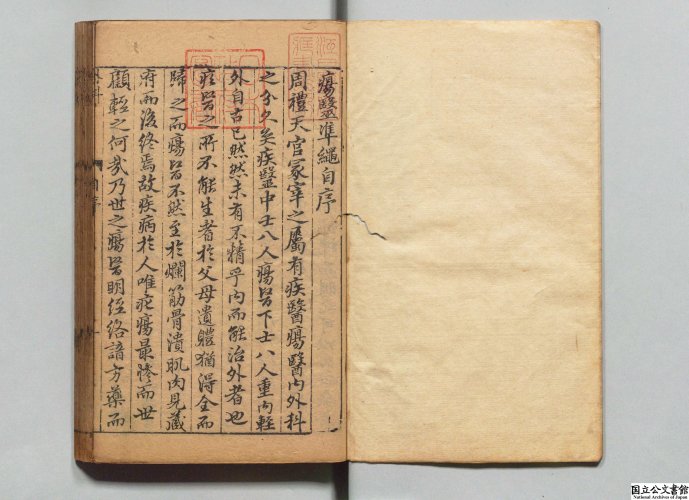 瘍醫準繩自序
周禮天官冢宰之屬有疾醫瘍醫內外科
之分久矣疾醫中士八人瘍醫下士八人重內輕
外自古已然然未有不精乎內而能治外者也
疾醫之所不能生者於父母遺體猶得全而
歸之而瘍醫不然至於爛筋骨潰肌肉見藏
府而後終焉故疾病於人唯疕瘍最慘而世
顧輕之何哉乃世之瘍醫明經絡諳方藥而
自序
国立公文書館
National Archives of Japan